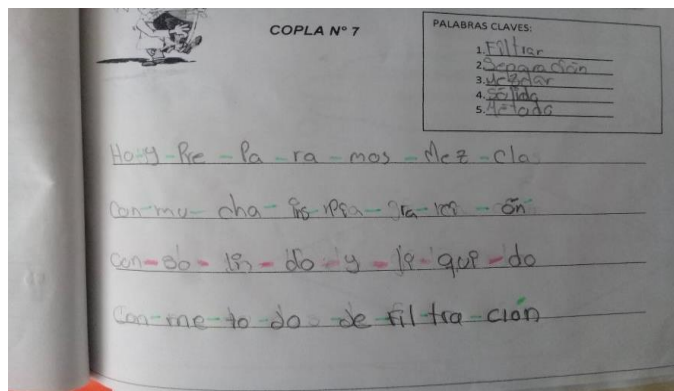 COPLA N° 7
PALABRAS CLAVES:
1. Filtrar
2. Separación
3. Mezclar
4. Sólido
5. Método
Ho-y-Pre-Pa-ra-mos-Mez-clas
con-mu-cha-ins-pira-ra-ci-ón
con-so-li-do-y-li-qui-do
Con-me-to-do-de-fil-tra-ción